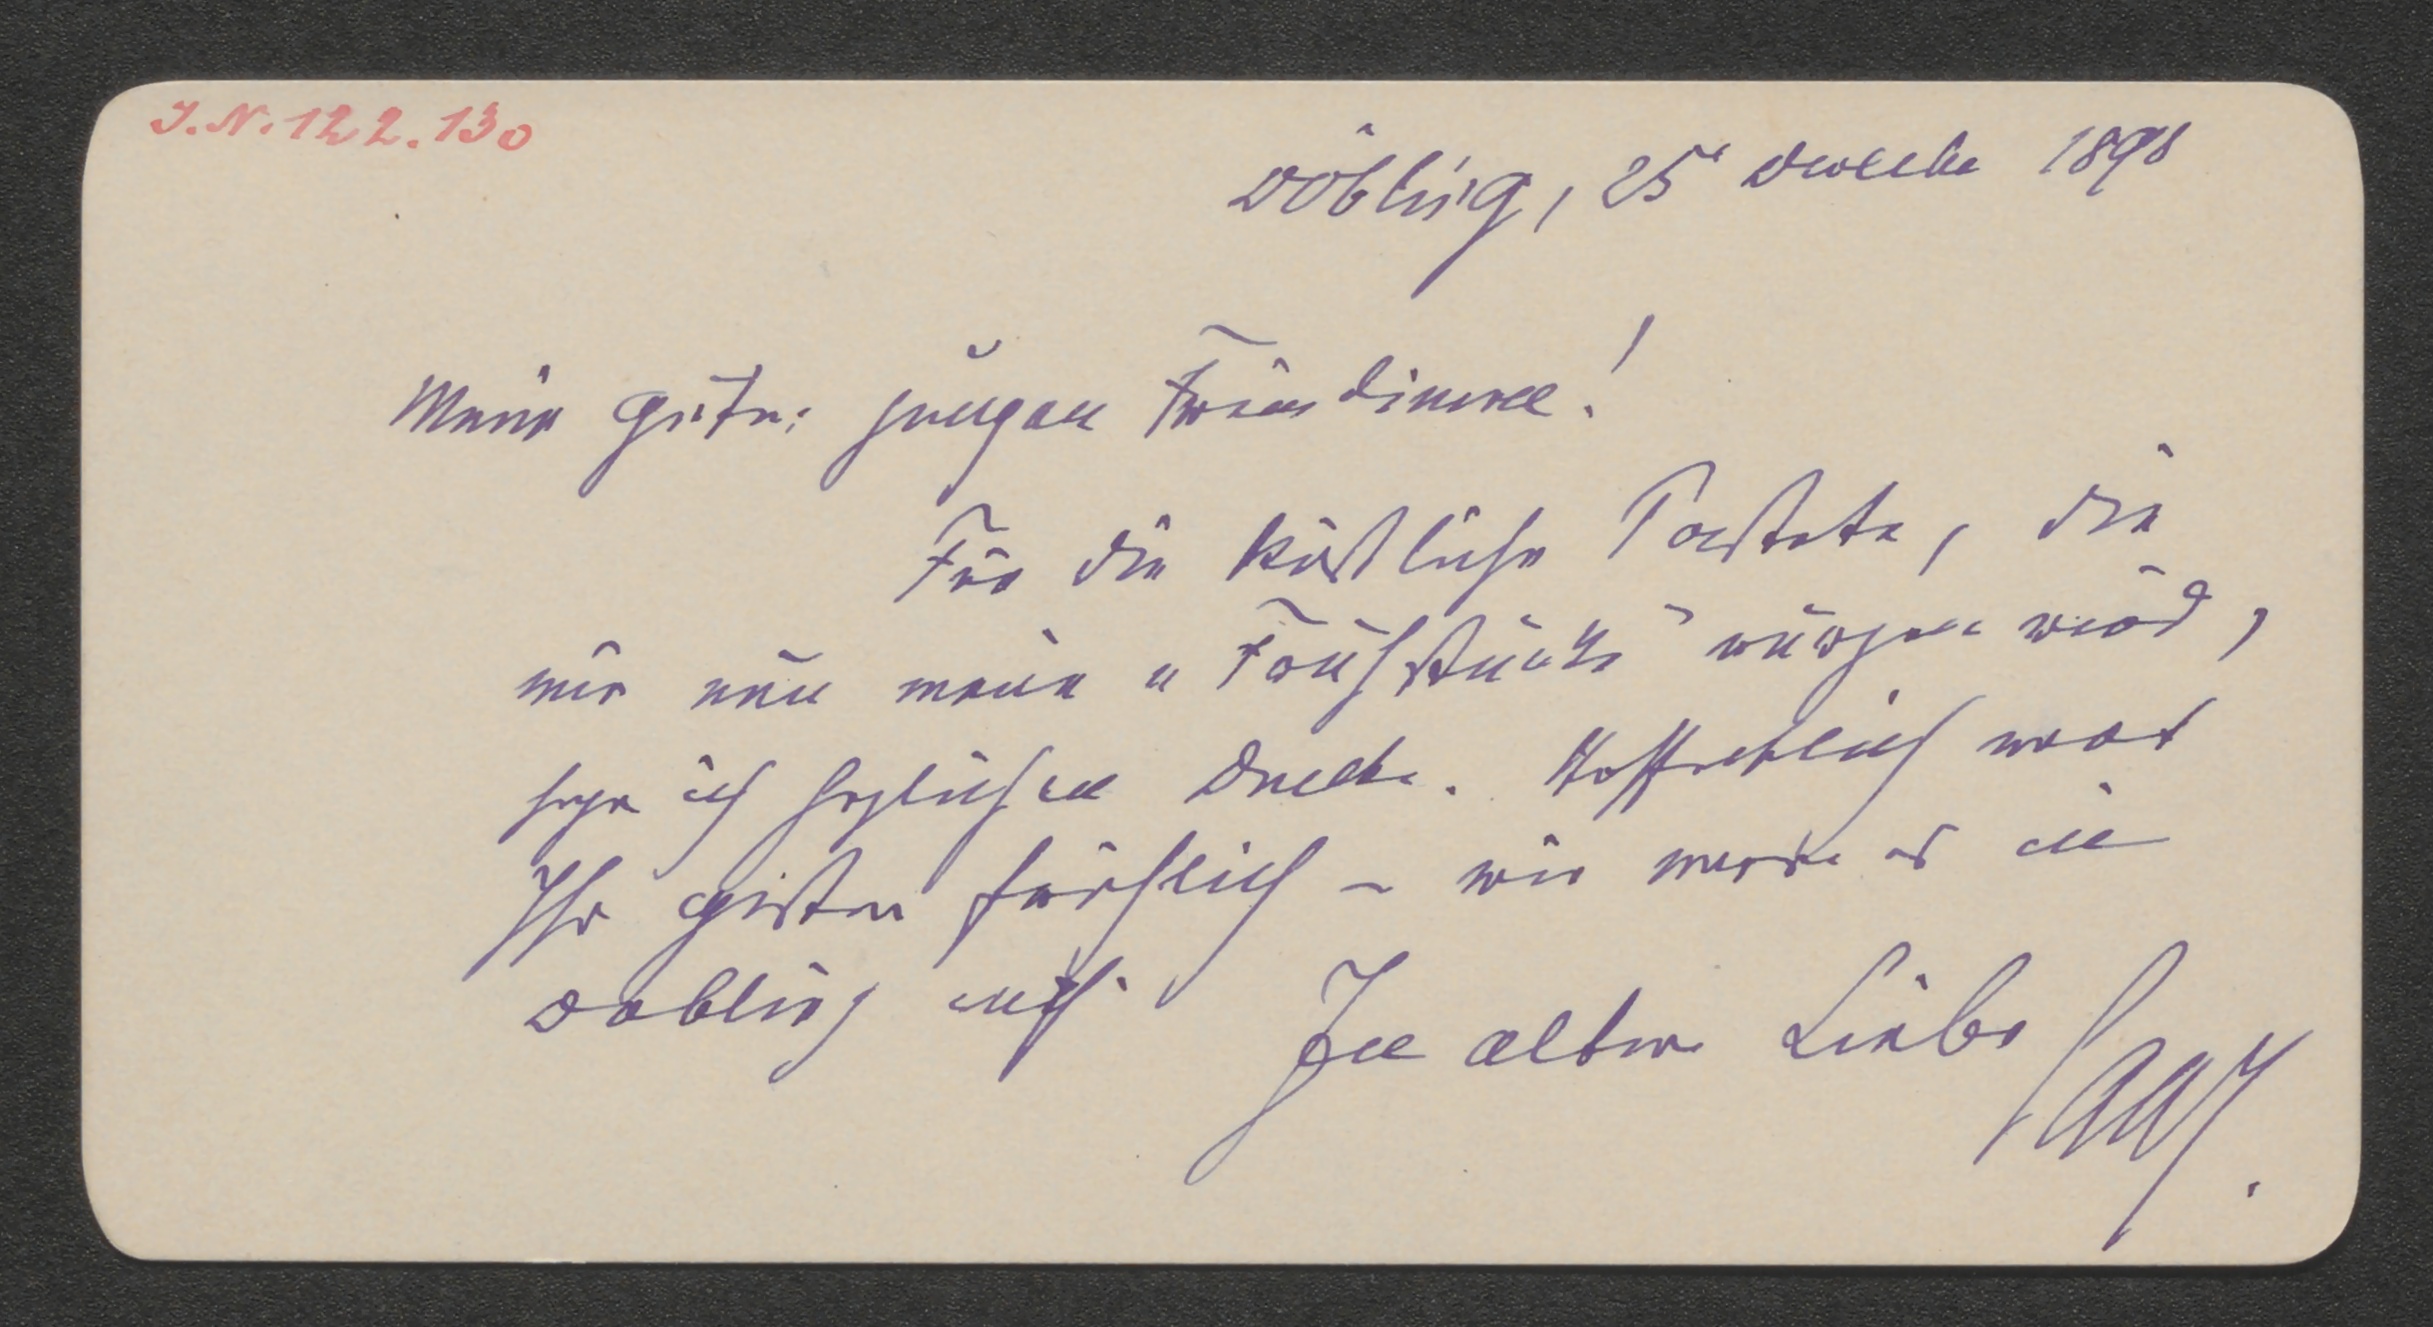 J.N. 122.130
Döbling, 25 December 1898
Meine guten jungen Freundinnen!
Für die köstliche Pastete, die
mir nun meine „Frühstücke" würzen wird,
sage ich herzlichen Dank. Hoffentlich wart
Ihr gestern fröhlich – wir waren es in
Doebling auch.
In alter Liebe
Saar.